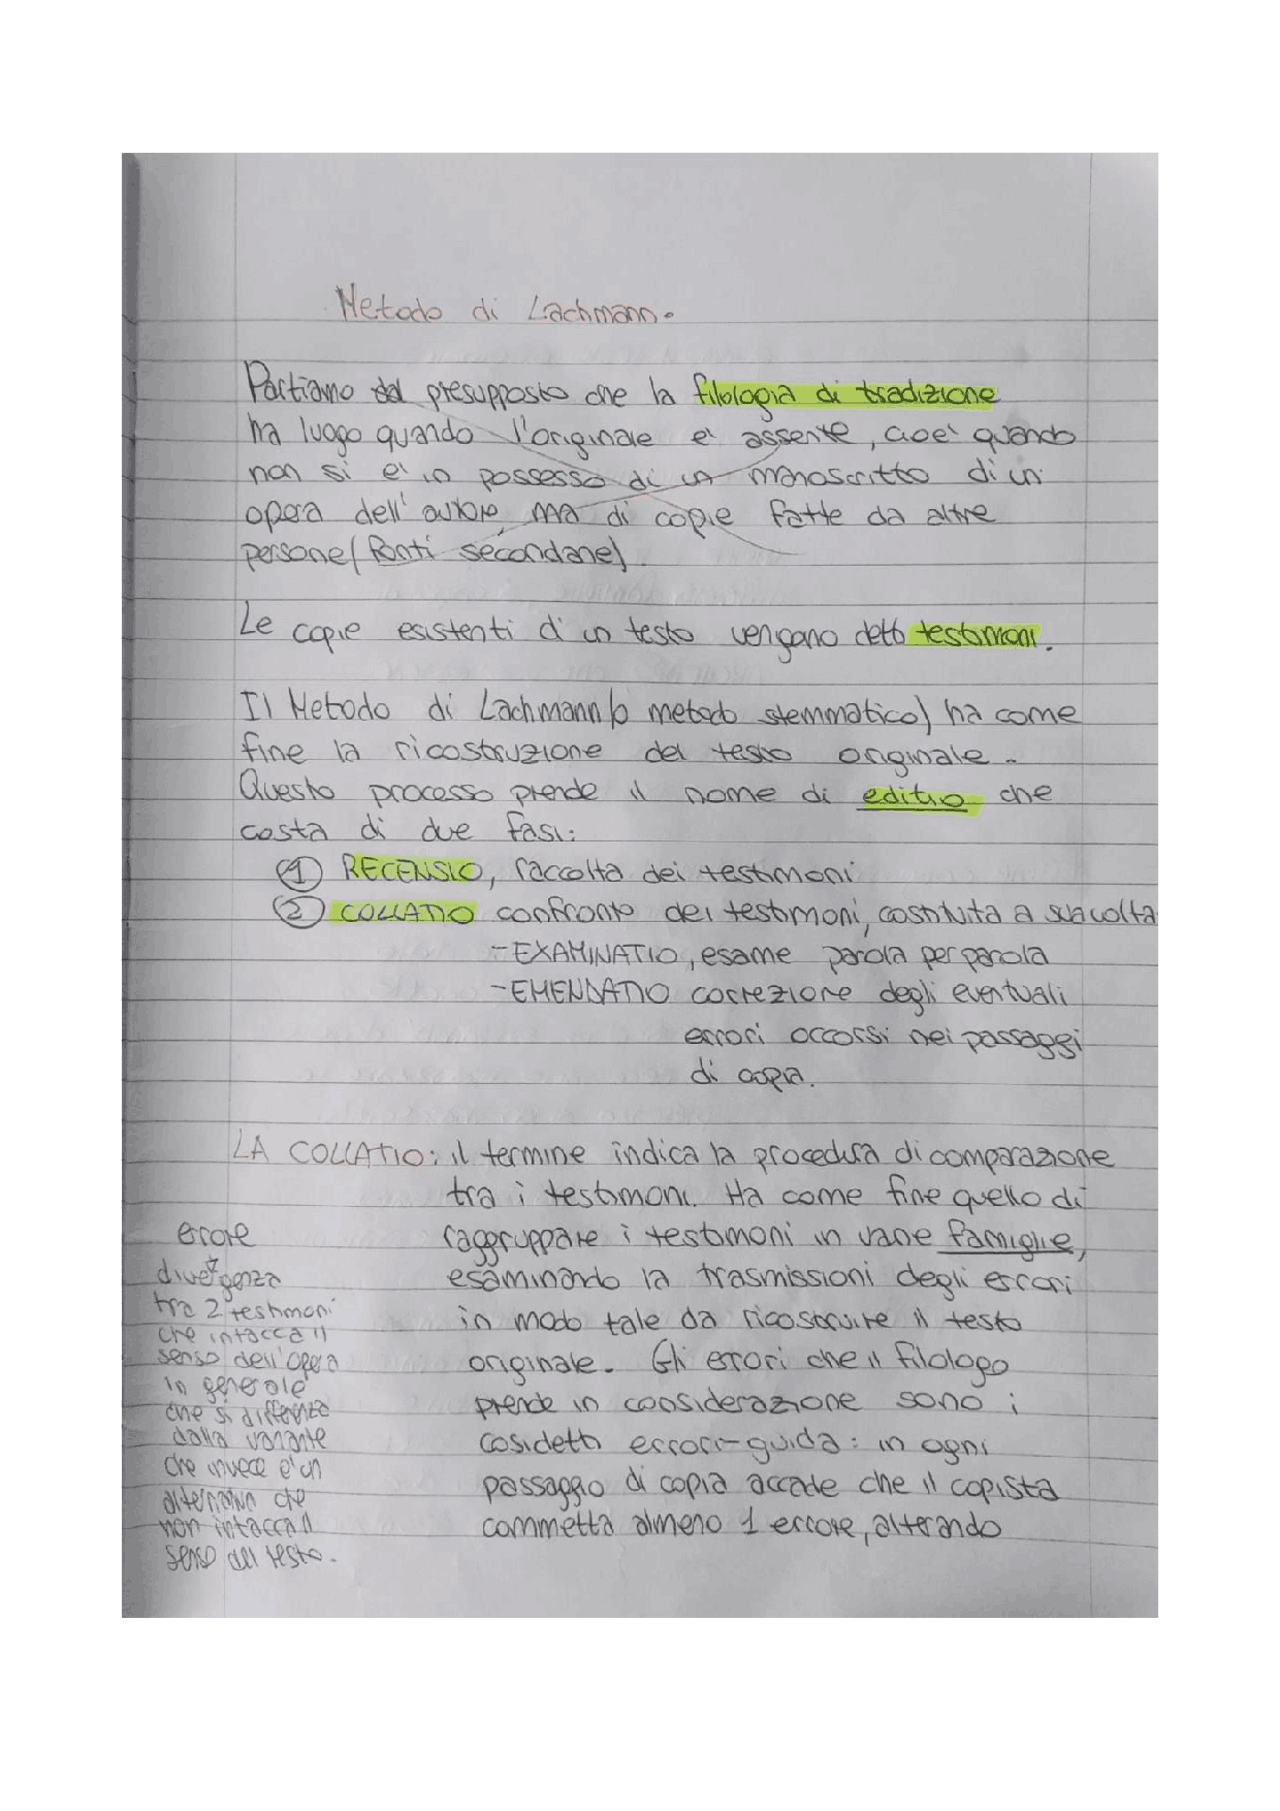 Metodo di Lachmann.
Partiamo dal presupposto che la filologia di tradizione
ha luogo quando l'originale e' assente, cioe' quando
non si e' in possesso di un manoscritto di un
opera dell'autore, ma di copie fatte da altre
persone (fonti secondarie).
Le copie esistenti di un testo vengano detti testimoni.
Il Metodo di Lachmann (o metodo stemmatico) ha come
fine la ricostruzione del testo originale.
Questo processo prende il nome di editio che
costa di due fasi:
1 RECENSIO, raccolta dei testimoni
2 COLLATIO confronto dei testimoni, costituita a sua volta
-EXAMINATIO, esame parola per parola
-EMENDATIO correzione degli eventuali
errori occorsi nei passaggi
di copia.
LA COLLATIO: il termine indica la procedura di comparazione
tra i testimoni. Ha come fine quello di
raggruppare i testimoni in varie famiglie,
esaminando la trasmissioni degli errori
in modo tale da ricostruire il testo
originale. Gli errori che il filologo
prende in considerazione sono i
cosidetti errori-guida: in ogni
passaggio di copia accade che il copista
commetta almeno 1 errore, alterando
errore
divergenza
tra 2 testimoni
che intacca il
senso dell'opera
in generale
che si differenzia
dalla variante
che invece e' un
alternativa che
non intacca il
senso del testo.